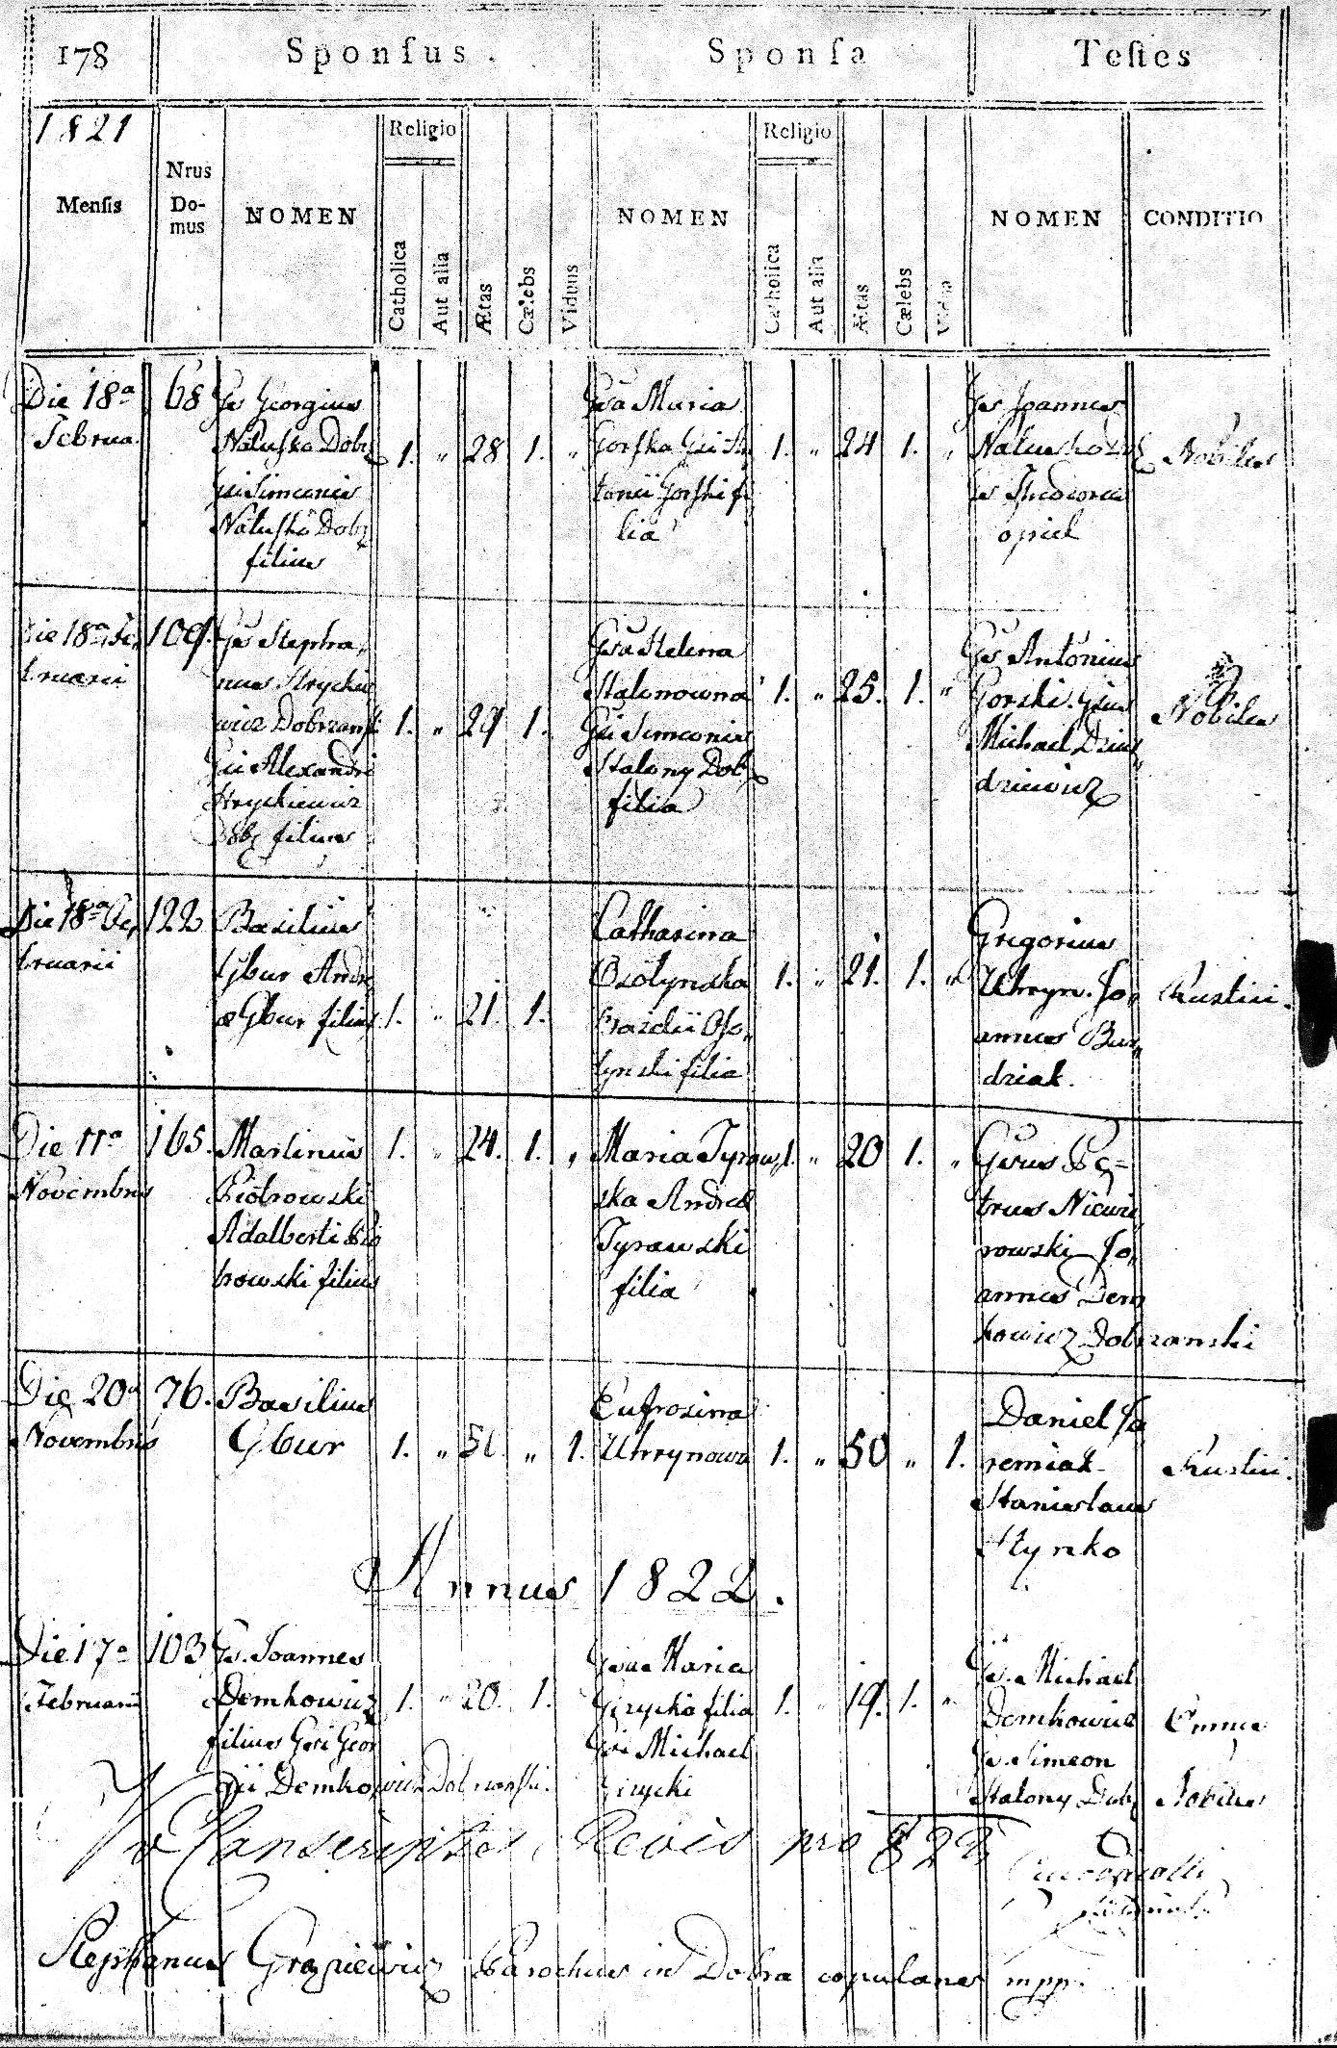 178 Sponſus. Sponſa Teſtes
1821
Menſis
Nrus Do-mus
NOMEN
Religio
Catholica
Aut alia
Ætas
Cælebs
Viduus
NOMEN
Religio
Catholica
Aut alia
Ætas
Cælebs
Vidua
NOMEN
CONDITIO
Die 18a
Februa.
68
Gs Georgius
Natuſka Dobrz
Gsi Simeonis
Natuſka Dobrz
filius
1. „ 28 1. „
Gsa Maria
Gorſka Gsi An
tonii Gorſki fi
lia
1. „ 24 1. „
Gs Joannes
Gs Theodorus
opiel
Nobiles
Die 18a Fe,
bruarii
109.
Gs Stepha,
nus Hryckie
wicz Dobrzansk
Gsi Alexandri
Hryckiewicz
Dobrz filius
1. „ 29 1.
Gsa Helena
Stalonowna
Gsi Simeonis
Stalony Dobrz
filia
1. „ 25. 1. „
Gs Antonius
Gorski. Gsus
Michael Dziu
dziewicz
Nobiles
Die 18a Fe,
bruarii
122
Basilius
Gbur Andre
æ Gbur filius
1. „ 21. 1.
Catharina
Osolynska
Oso„
lynski filia
1. „ 21. 1. „
Gregorius
Uhryn. Jo„
annes Bur„
dziak.
Rustici.
Die 11a
Novembris
165.
Martinus
Piotrowski
Adalberti Pio
trowski filius
1. „ 24. 1. „
Maria Tyraw
ska Andreæ
Tyrawski
filia
1. „ 20 1. „
Gsus Pe=
trus Niewia
rowski Jo„
annes Dem
kowicz Dobrzanski
Die 20a
Novembris
76.
Basilius
Gbur
1. „ 50. „ 1.
Eufrosina
Uhrynowa
1. „ 50 „ 1.
Daniel Ja
remiak
Stanislaus
Hynko
Rustici.
Annus 1822.
Die 17a
Februarii
103
Gs. Joannes
Demkowicz
filius Gsi Geor
gii Demkowicz Dobrzanſki.
1. „ 20. 1.
Gsa Maria
Gizycka filia
Gsi Michael
Gizycki
1. „ 19. 1. „
Gs. Michael
Demkowicz
Gs Simeon
Stalony Dobrz
Omnes
Nobiles
pro 822
Stephanus Grazieiewicz Parochus in Dobra copulans mpp.